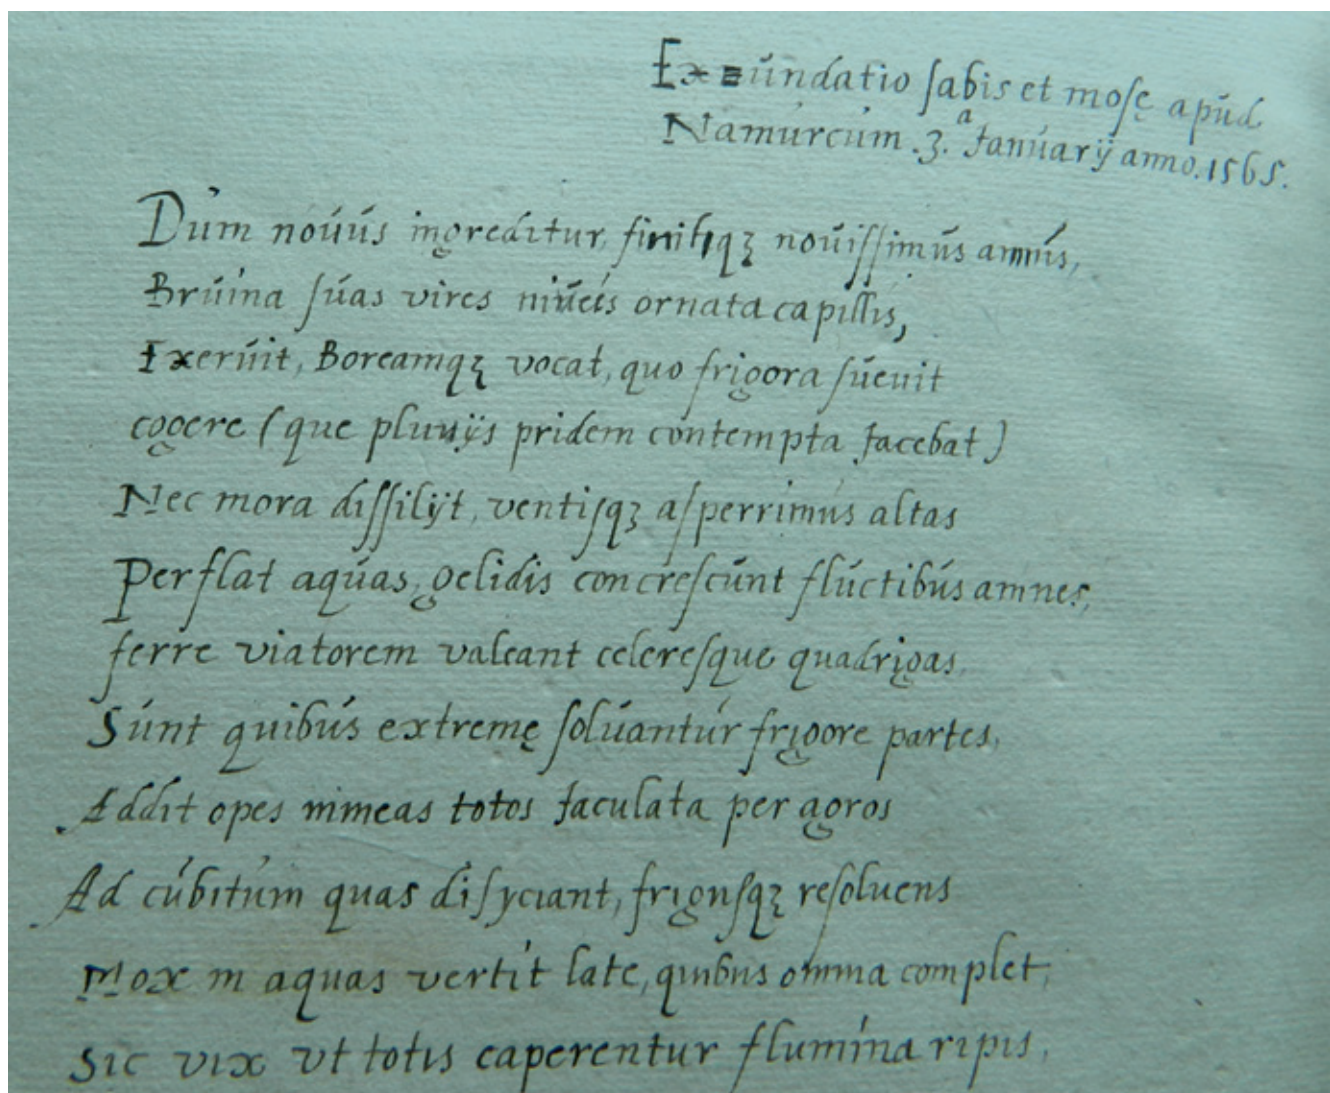 Exundatio sabis et mosę apud
Namurcum .3.ª Januarij anno .1565.
Dum nouus ingreditur, finitqꝫ nouissimus annus,
Bruma suas vires niueis ornata capillis,
Exeruit, Boreamqꝫ vocat, quo frigora sueuit
cogere (que pluuijs pridem contempta Jacebat)
Nec mora dissilijt, ventisqꝫ asperrimus altas
Perflat aquas, gelidis concrescunt fluctibus amnes,
ferre viatorem valeant celeresque quadrigas
Sunt quibus extremę soluantur frigore partes,
Addit opes nimeas totos Jaculata per agros
Ad cubitum quas disyciant, frigusqꝫ resoluens
Mox in aquas vertit late, quibus omnia complet,
Sic vix vt totis caperentur flumina ripis,